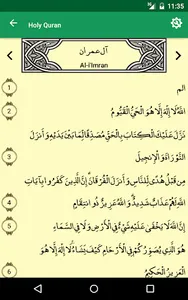 11:35
Holy Quran
آل عمران
Al-i'Imran
الم
1
اللَّهُ لَا إِلَٰهَ إِلَّا هُوَ الْحَيُّ الْقَيُّومُ
2
نَزَّلَ عَلَيْكَ الْكِتَابَ بِالْحَقِّ مُصَدِّقًا لِمَا بَيْنَ يَدَيْهِ وَأَنْزَلَ
التَّوْرَاةَ وَالْإِنْجِيلَ
3
مِنْ قَبْلُ هُدًى لِلنَّاسِ وَأَنْزَلَ الْفُرْقَانَ إِنَّ الَّذِينَ كَفَرُوا بِآيَاتِ
اللَّهِ لَهُمْ عَذَابٌ شَدِيدٌ وَاللَّهُ عَزِيزٌ ذُو انْتِقَامٍ
4
إِنَّ اللَّهَ لَا يَخْفَىٰ عَلَيْهِ شَيْءٌ فِي الْأَرْضِ وَلَا فِي السَّمَاءِ
5
هُوَ الَّذِي يُصَوِّرُكُمْ فِي الْأَرْحَامِ كَيْفَ يَشَاءُ لَا إِلَٰهَ إِلَّا هُوَ
الْعَزِيزُ الْحَكِيمُ
6